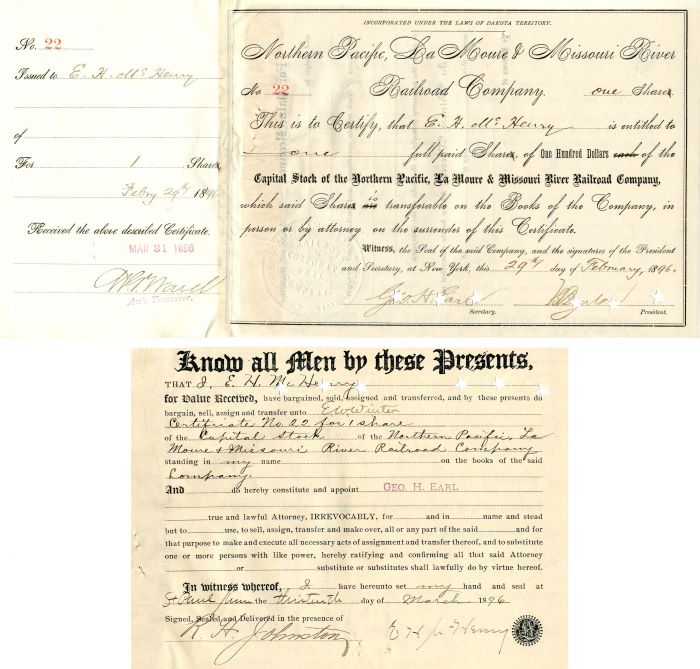 No. 22
Issued to E. H. McHenry
of
For 1 Share
Febry 29th 1896
Received the above described Certificate.
MAR 31 1896
Ass't Treasurer.
INCORPORATED UNDER THE LAWS OF DAKOTA TERRITORY.
Northern Pacific, La Moure & Missouri River
No 22 Railroad Company. one Share
This is to Certify, that E. H. McHenry is entitled to
one full paid Share, of One Hundred Dollars each of the
Capital Stock of the Northern Pacific, La Moure & Missouri River Railroad Company,
which said Share is are transferable on the Books of the Company, in
person or by attorney on the surrender of this Certificate.
Witness, the Seal of the said Company, and the signatures of the President
and Secretary, at New York, this 29th day of February, 1896.
Geo. H. Earl
Secretary. President.
Know all Men by these Presents,
THAT I, E. H. McHenry
for Value Received, have bargained, sold, assigned and transferred, and by these presents do
bargain, sell, assign and transfer unto E W Winter
Certificate No. 22 for 1 share
of the Capital Stock of the Northern Pacific, La
Moure & Missouri River Railroad Company
standing in my name on the books of the said
Company.
And do hereby constitute and appoint GEO. H. EARL
true and lawful Attorney, IRREVOCABLY, for and in name and stead
but to use, to sell, assign, transfer and make over, all or any part of the said and for
that purpose to make and execute all necessary acts of assignment and transfer thereof, and to substitute
one or more persons with like power, hereby ratifying and confirming all that said Attorney
or substitute or substitutes shall lawfully do by virtue hereof.
In witness whereof, I have hereunto set my hand and seal at
St Paul Minn the thirteenth day of March 1896
Signed, Sealed and Delivered in the presence of
R. H. Johnston E H McHenry